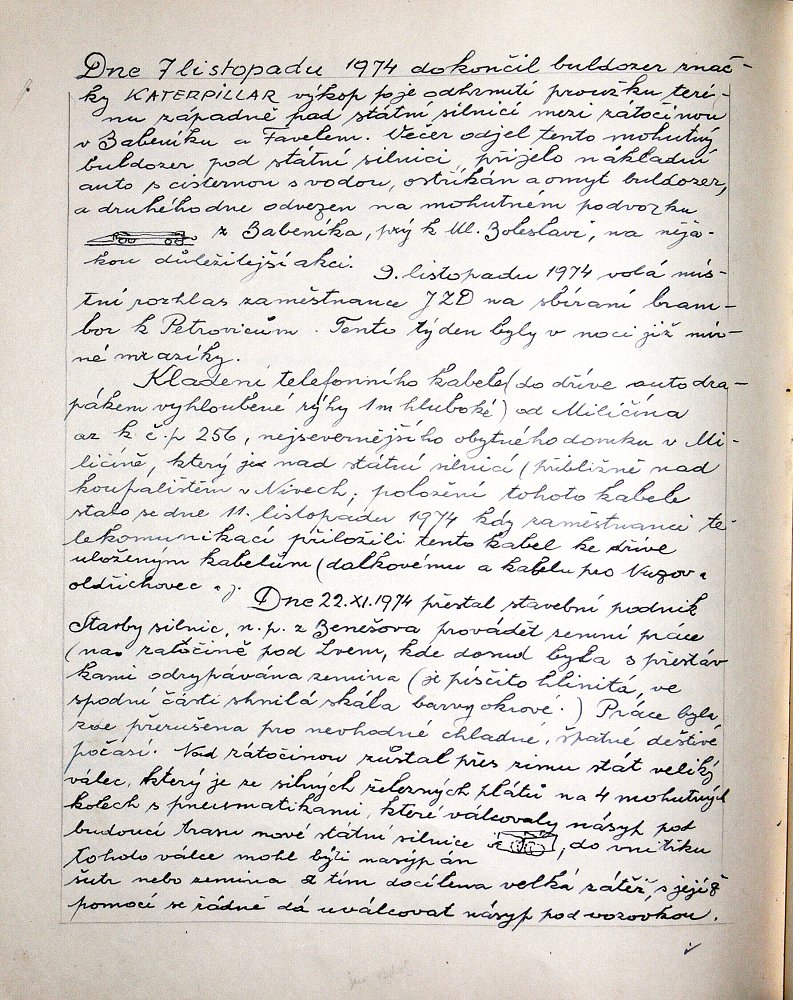 Dne 7 listopadu 1974 dokončil buldozer znač-
ky KATERPILLAR výkop po je odhrnutí proužku teré-
nu západně pod státní silnicí mezi zátočinou
v Babeníku a Favelem. Večer odjel tento mohutný
buldozer pod státní silnici, přijelo nákladní
auto s cisternou s vodou, ostříkán a omyt buldozer,
a druhého dne odvezen na mohutném podvozku
z Babeníka, prý k Ml. Boleslavi, na něja-
kou důležitější akci. 9. listopadu 1974 volá mís-
tní rozhlas zaměstnance JZD na sbíraní bram-
bor k Petrovicům. Tento týden byly v noci již mír-
né mrazíky.
Kladení telefonního kabele (do dříve autodra-
pákem vyhloubené rýhy 1m hluboké) od Miličína
az k č.p 256, nejsevernějšího obytného domku v Mi-
ličíně, který je nad státní silnicí (přibližně nad
koupalištěm v Nivech; položení tohoto kabele
stalo se dne 11. listopadu 1974 kdy zaměstnanci te-
lekomunikací přiložili tento kabel ke dříve
uloženým kabelům (dalkovému a kabelu pro
oldřichovec
Dne 22.XI.1974 přestal stavební podnik
Starby silnic, n.p. z Benešova provádět zemní práce
(na zatočině pod Lvem, kde dosud byla s přestáv
kami odrypávána zemina (je písčito hlinitá, ve
spodní části shnilá skála barvy okrové.) Práce byla
zve přerušena pro nevhodné chladné, špatné deštivé
počasí. Nad zátočinou zůstal přes zimu stát veliký
válec, který je ze silných železných plátů na 4 mohutných
kolech s pneumatikami, které válcovaly násyp pod
budoucí trasu nové státní silnice ; do vnitřku
tohoto válce mohl býti nasypán
šutr nebo zemina a tím docílena velká zátěž, s její ž
pomocí se řádně dá uválcovat násyp pod vozovkou.